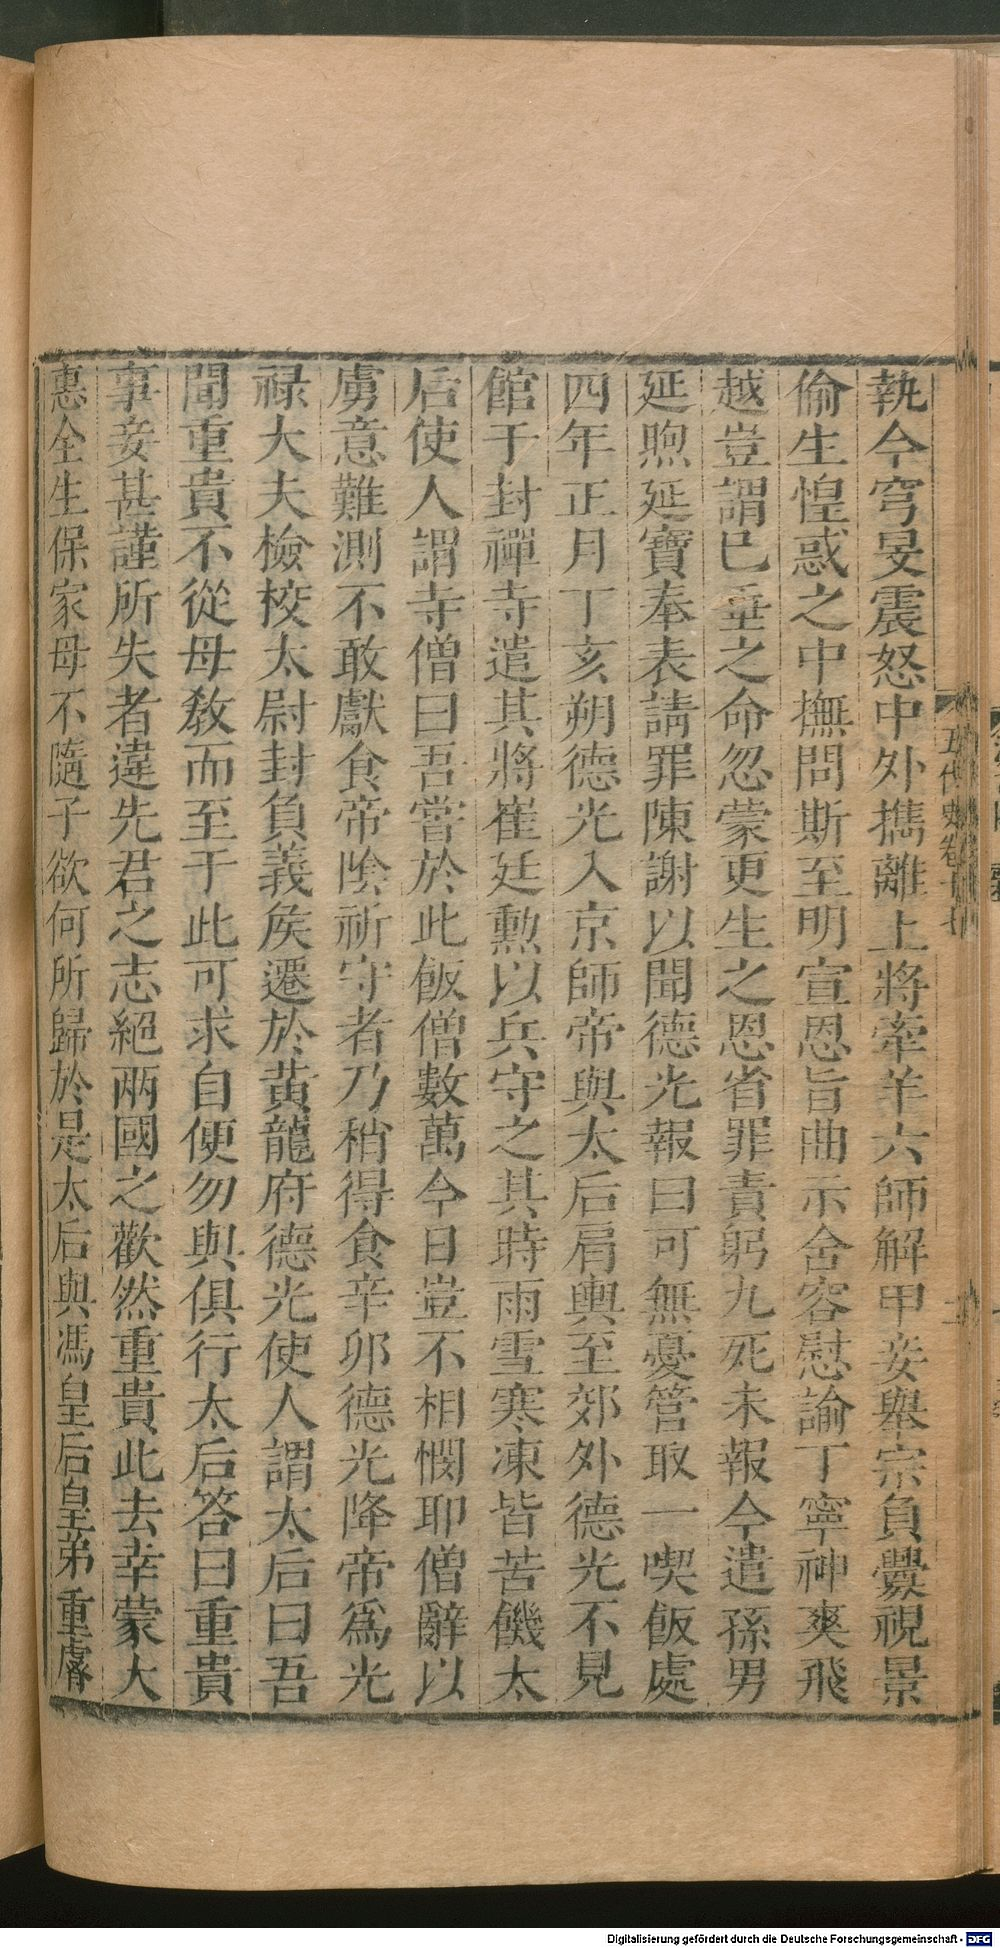 執今穹旻震怒中外攜離上將牽羊六師解甲妾舉宗負釁視景
偷生惶惑之中撫問斯至明宣恩旨曲示含容慰諭丁寧神爽飛
越豈謂已垂之命忽蒙更生之恩省罪責躬九死未報今遣孫男
延煦延寶奉表請罪陳謝以聞德光報曰可無憂管取一喫飯處
四年正月丁亥朔德光入京師帝與太后肩輿至郊外德光不見
館于封禪寺遣其將崔廷勳以兵守之其時雨雪寒凍皆苦饑太
后使人謂寺僧曰吾嘗於此飯僧數萬今日豈不相憫耶僧辭以
虜意難測不敢獻食帝陰祈守者乃稍得食辛卯德光降帝爲光
祿大夫檢校太尉封負義矦遷於黃龍府德光使人謂太后曰吾
聞重貴不從母教而至于此可求自便勿與俱行太后答曰重貴
事妾甚謹所失者違先君之志絕兩國之歡然重貴此去幸蒙大
惠全生保家母不隨子欲何所歸於是太后與馮皇后皇弟重睿
五代史卷十七
二
Digitalisierung gefördert durch die Deutsche Forschungsgemeinschaft - DFG